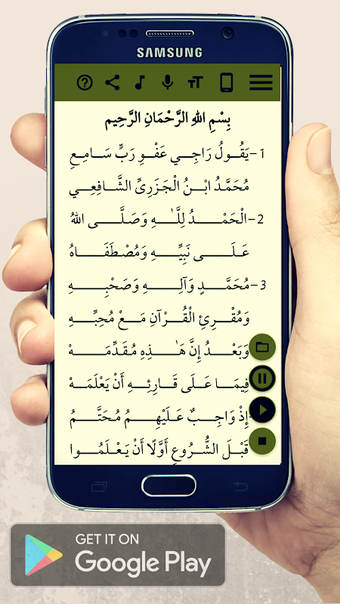 SAMSUNG
بِسْمِ اللهِ الرَّحْمَانِ الرَّحِيم
1- يَقُـولُ رَاجِـي عَفْـوِ رَبٍّ سَامِـعِ
مُحَمَّدُ ابْـنُ الْجَزَرِيِّ الشَّافِعِي
2- الْحَمْـــدُ لِلَّـــهِ وَصَلَّـــى اللهُ
عَلَـــى نَبِيِّـــهِ وَمُصْطَفَـــاهُ
3- مُحَمَّـــدٍ وَآلِـــهِ وَصَحْبِـــهِ
وَمُقْرِئِ الْقُـرْآنِ مَـعْ مُحِبِّـهِ
وَبَعْـدُ إِنَّ هَـذِهِ مُقَدِّمَـهْ
فِيمَـا عَلَى قَارِئِـهِ أَنْ يَعْلَمَـهْ
إِذْ وَاجِـبٌ عَلَيْهِـمُ مُحَتَّـمُ
قَبْلَ الشُّـرُوعِ أَوَّلًا أَنْ يَعْلَمُـوا
GET IT ON
Google Play